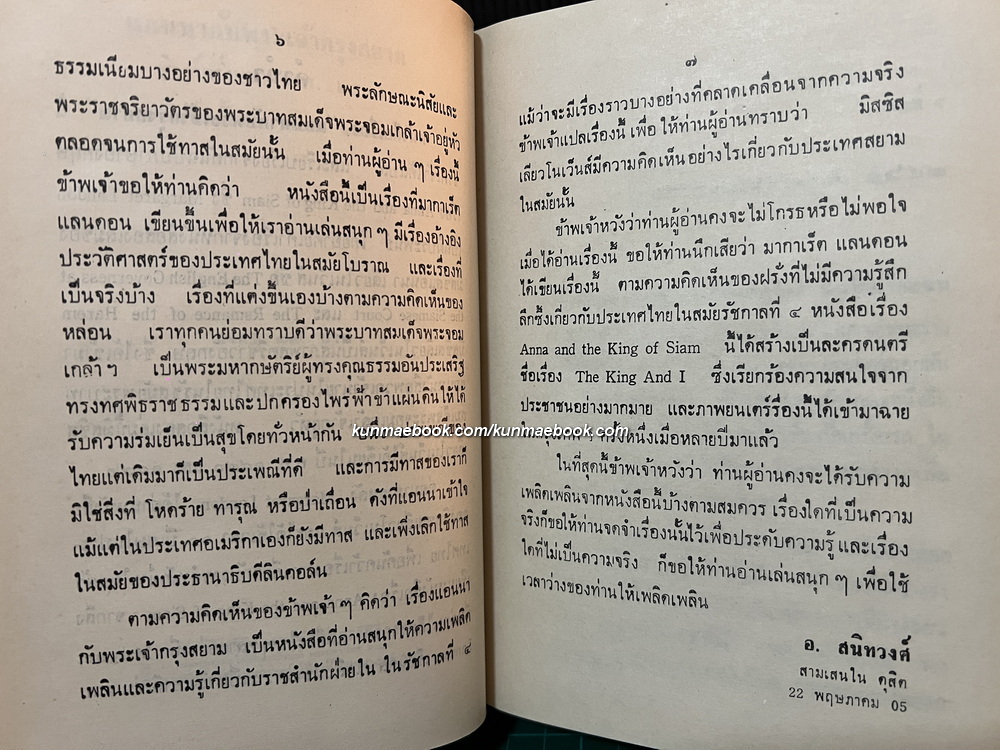 ๖
ธรรมเนียมบางอย่างของชาวไทย พระลักษณะนิสัยและ
พระราชจริยาวัตรของพระบาทสมเด็จพระจอมเกล้าเจ้าอยู่หัว
ตลอดจนการใช้ทาสในสมัยนั้น เมื่อท่านผู้อ่าน ๆ เรื่องนี้
ข้าพเจ้าขอให้ท่านคิดว่า หนังสือนี้เป็นเรื่องที่มากาเร็ต
แลนดอน เขียนขึ้นเพื่อให้เราอ่านเล่นสนุก ๆ มีเรื่องอ้างอิง
ประวัติศาสตร์ของประเทศไทยในสมัยโบราณ และเรื่องที่
เป็นจริงบ้าง เรื่องที่แต่งขึ้นเองบ้างตามความคิดเห็นของ
หล่อน เราทุกคนย่อมทราบดีว่าพระบาทสมเด็จพระจอม
เกล้าฯ เป็นพระมหากษัตริย์ผู้ทรงคุณธรรมอันประเสริฐ
ทรงทศพิธราชธรรมและปกครองไพร่ฟ้าข้าแผ่นดินให้ได้
รับความร่มเย็นเป็นสุขโดยทั่วหน้ากัน
ไทยแต่เดิมมาก็เป็นประเพณีที่ดี และการมีทาสของเราก็
มิใช่สิ่งที่ โหดร้าย ทารุณ หรือป่าเถื่อน ดังที่แอนนาเข้าใจ
แม้แต่ในประเทศอเมริกาเองก็ยังมีทาส และเพิ่งเลิกใช้ทาส
ในสมัยของประธานาธิบดีลินคอล์น
ตามความคิดเห็นของข้าพเจ้า ๆ คิดว่า เรื่องแอนนา
กับพระเจ้ากรุงสยาม เป็นหนังสือที่อ่านสนุกให้ความเพลิด
เพลินและความรู้เกี่ยวกับราชสำนักฝ่ายใน ในรัชกาลที่ ๔
๗
แม้ว่าจะมีเรื่องราวบางอย่างที่คลาดเคลื่อนจากความจริง
ข้าพเจ้าแปลเรื่องนี้ เพื่อ ให้ท่านผู้อ่านทราบว่า มิสซิส
เลียวโนเว็นส์มีความคิดเห็นอย่างไรเกี่ยวกับประเทศสยาม
ในสมัยนั้น
ข้าพเจ้าหวังว่าท่านผู้อ่านคงจะไม่โกรธหรือไม่พอใจ
เมื่อได้อ่านเรื่องนี้ ขอให้ท่านนึกเสียว่า มากาเร็ต แลนดอน
ได้เขียนเรื่องนี้ ตามความคิดเห็นของฝรั่งที่ไม่มีความรู้สึก
ลึกซึ้งเกี่ยวกับประเทศไทยในสมัยรัชกาลที่ ๔ หนังสือเรื่อง
Anna and the King of Siam นี้ได้สร้างเป็นละครดนตรี
ชื่อเรื่อง The King And I ซึ่งเรียกร้องความสนใจจาก
ประชาชนอย่างมากมาย และภาพยนตร์เรื่องนี้ได้เข้ามาฉาย
kunmaebook.com/kunmaebook.com
หนึ่งเมื่อหลายปีมาแล้ว
ในที่สุดนี้ข้าพเจ้าหวังว่า ท่านผู้อ่านคงจะได้รับความ
เพลิดเพลินจากหนังสือนี้บ้างตามสมควร เรื่องใดที่เป็นความ
จริงก็ขอให้ท่านจดจำเรื่องนั้นไว้เพื่อประดับความรู้ และเรื่อง
ใดที่ไม่เป็นความจริง ก็ขอให้ท่านอ่านเล่นสนุก ๆ เพื่อใช้
เวลาว่างของท่านให้เพลิดเพลิน
อ. สนิทวงศ์
สามเสนใน ดุสิต
22 พฤษภาคม 05